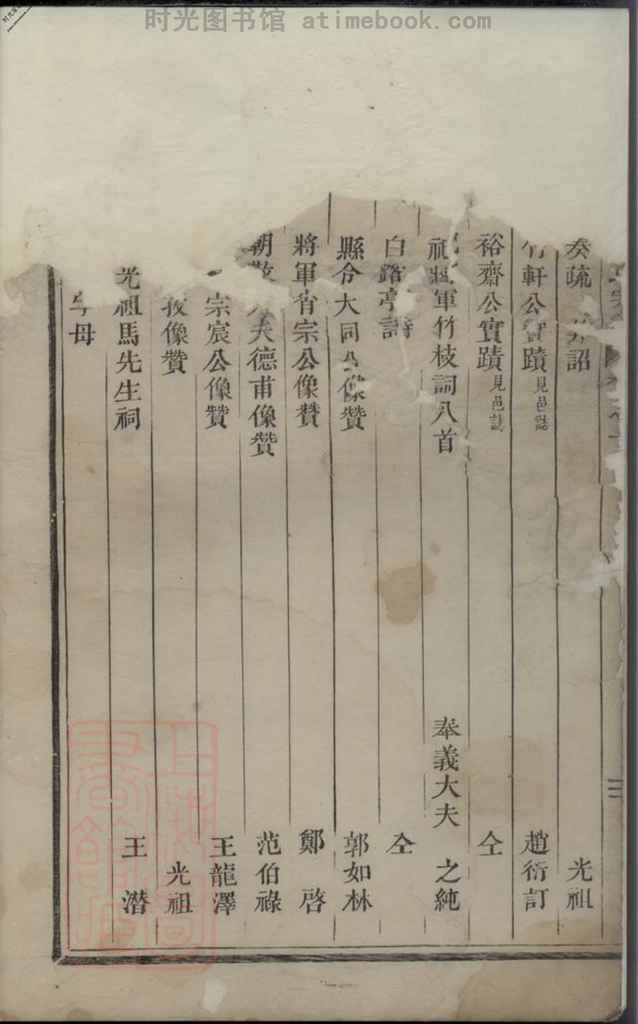 时光图书馆 atimebook.com
奏疏 詔 光祖
軒公實蹟見邑誌 趙衍訂
裕齋公實蹟見邑誌 仝
將軍竹枝詞八首 奉義大夫 之純
白鷺亭詩 仝
縣令大同公像贊 郭如林
將軍宗公像贊 鄭啓
朝散大夫德甫像贊 范伯祿
宗宸公像贊 王龍澤
像贊 光祖
光祖馬先生祠 王潛
母
三